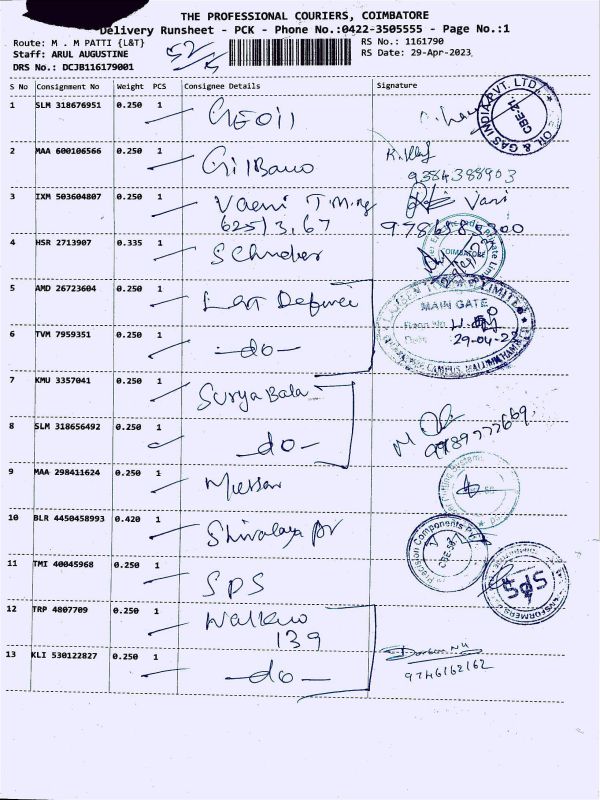 THE PROFESSIONAL COURIERS, COIMBATORE
Delivery Runsheet - PCK - Phone No.:0422-3505555 - Page No.:1
Route: M . M PATTI {L&T}
Staff: ARUL AUGUSTINE
DRS No.: DCJB116179001
52
RS No.: 1161790
RS Date: 29-Apr-2023
S No Consignment No Weight PCS Consignee Details Signature
1 SLM 318676951 0.250 1 GEOil
OIL & GAS INDIA PVT. LTD.
CBE-41.
2 MAA 600106566 0.250 1
9384388903
3 IXM 503604807 0.250 1 Vaeni T.M.ng Vani
62513,67
4 HSR 2713907 0.335 1
COIMBATORE
5 AMD 26723604 0.250 1 Defence
LIMITED
MAIN GATE
29-04-23
CAMPUS,
6 TVM 7959351 0.250 1 -do-
7 KMU 3357041 0.250 1 Surya Bala
8 SLM 318656492 0.250 1 -do-
9 MAA 298411624 0.250 1
10 BLR 4450458993 0.420 1 Shivalaya
Precision Components
11 TMI 40045968 0.250 1 SPS
SPS
12 TRP 4807709 0.250 1
139
13 KLI 530122827 0.250 1 -do-
9746162162